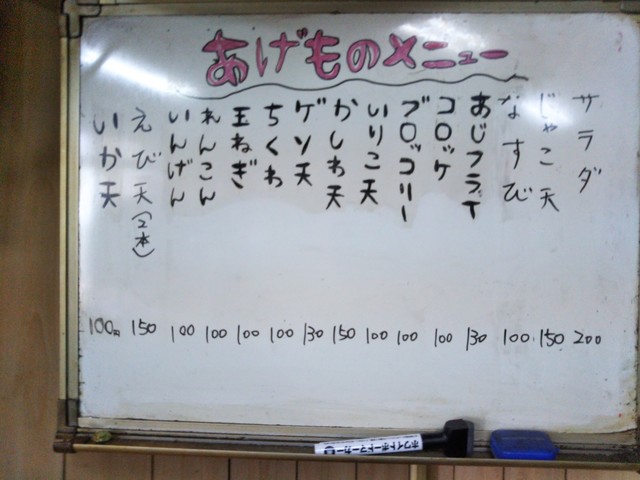 あげものメニュー
サラダ 200
じゃこ天 150
なすび 100
あじフライ 130
コロッケ 100
ブロッコリー 100
いりこ天 100
かしわ天 150
ゲソ天 130
ちくわ 100
玉ねぎ 100
れんこん 100
いんげん 100
えび天(2本) 150
いか天 100円
ホワイトボードマーカー